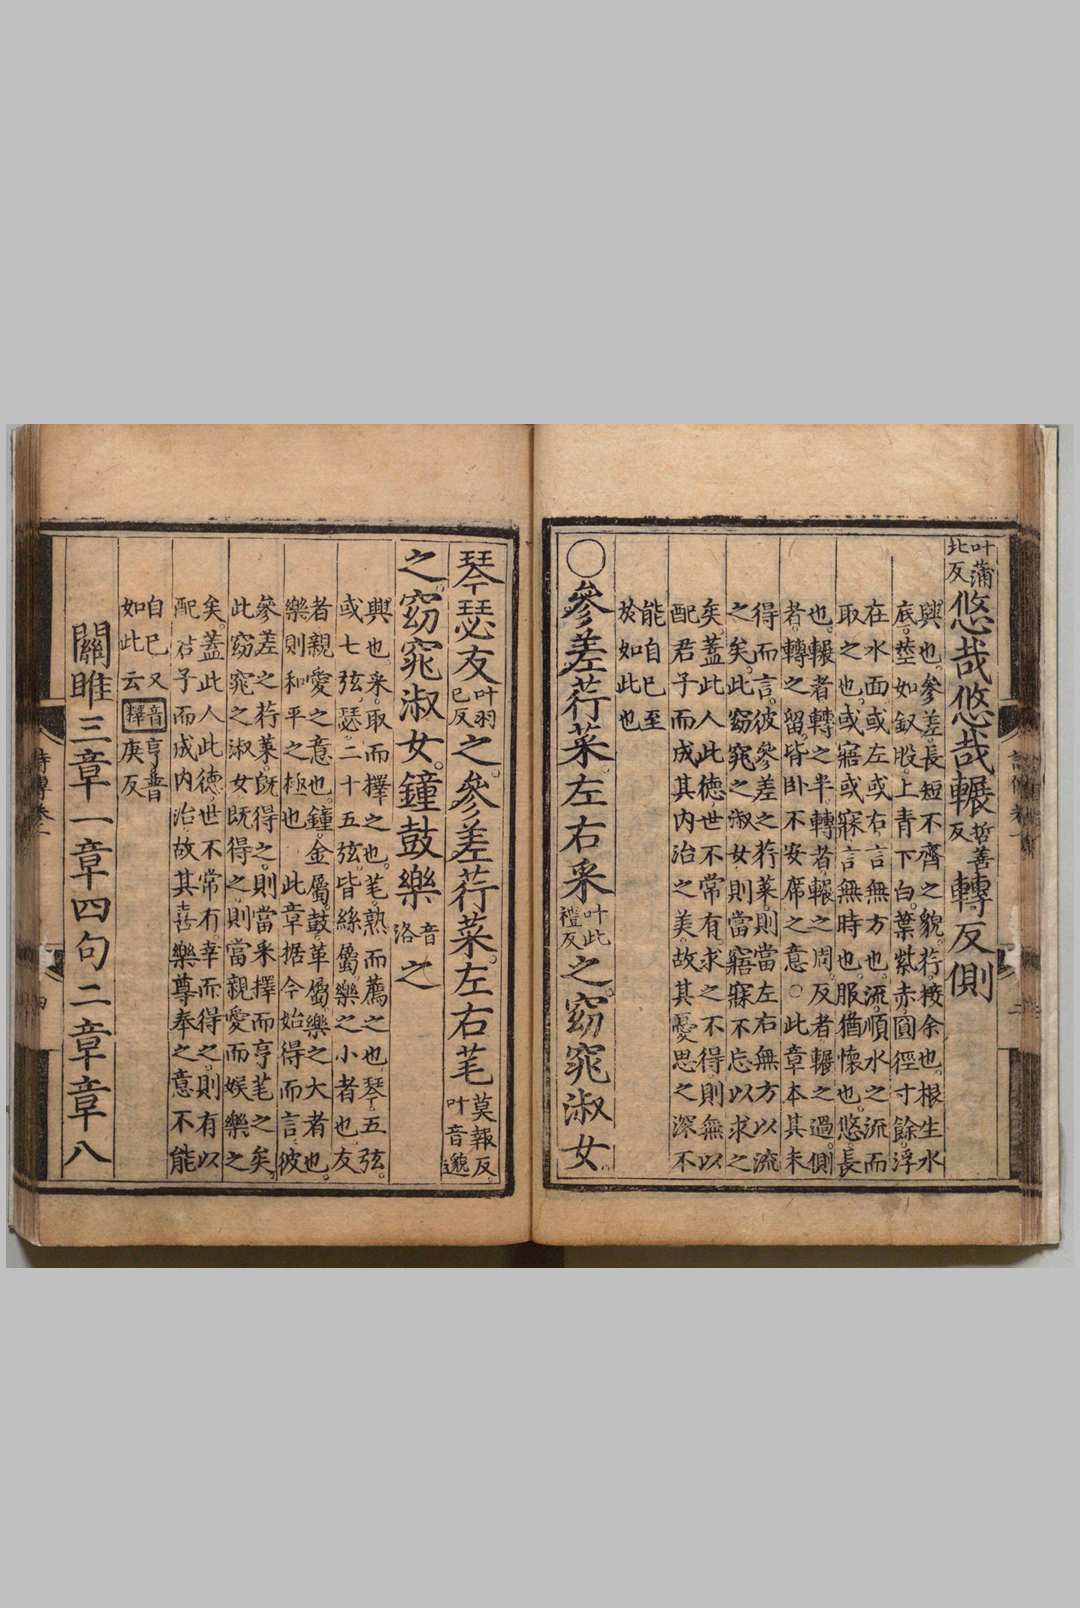 叶蒲北反悠哉悠哉輾哲善反轉反側
興也。參差。長短不齊之貌。荇。椄余也。根生水
底。莖如釵股。上青下白。葉紫赤。圓徑寸餘。浮
在水面。或左或右。言無方也。流。順水之流而
取之也。或寤或寐。言無時也。服猶懷也。悠。長
也。輾者轉之半。轉者輾之周。反者輾之過。側
者轉之留。皆臥不安席之意○此章本其未
得而言。彼參差之荇菜。則當左右無方以流
之矣。此窈窕之淑女。則當寤寐不忘以求之
矣。蓋此人此德。世不常有。求之不得。則無以
配君子而成其內治之美。故其憂思之深不
能自已至
於如此也
○參差荇菜左右采叶此禮反之窈窕淑女
琴瑟友叶羽已反之。參差荇菜。左右芼莫報反。叶音邈
之窈窕淑女。鐘鼓樂音洛之
興也。采。取而擇之也。芼。熟而薦之也。琴。五弦。
或七弦。瑟。二十五弦。皆絲屬。樂之小者也。友
者親愛之意也。鐘。金屬。鼓。革屬。樂之大者也。
樂則和平之極也○此章据今始得而言。彼
參差之荇菜。既得之。則當采擇而亨芼之矣。
此窈窕之淑女既得之。則當親愛而娛樂之
矣。蓋此人此德。世不常有。幸而得之。則有以
配君子而成內治。故其喜樂尊奉之意不能
自已又音亨普
如此云釋庚反
關雎三章一章四句二章章八
詩傳卷一
四